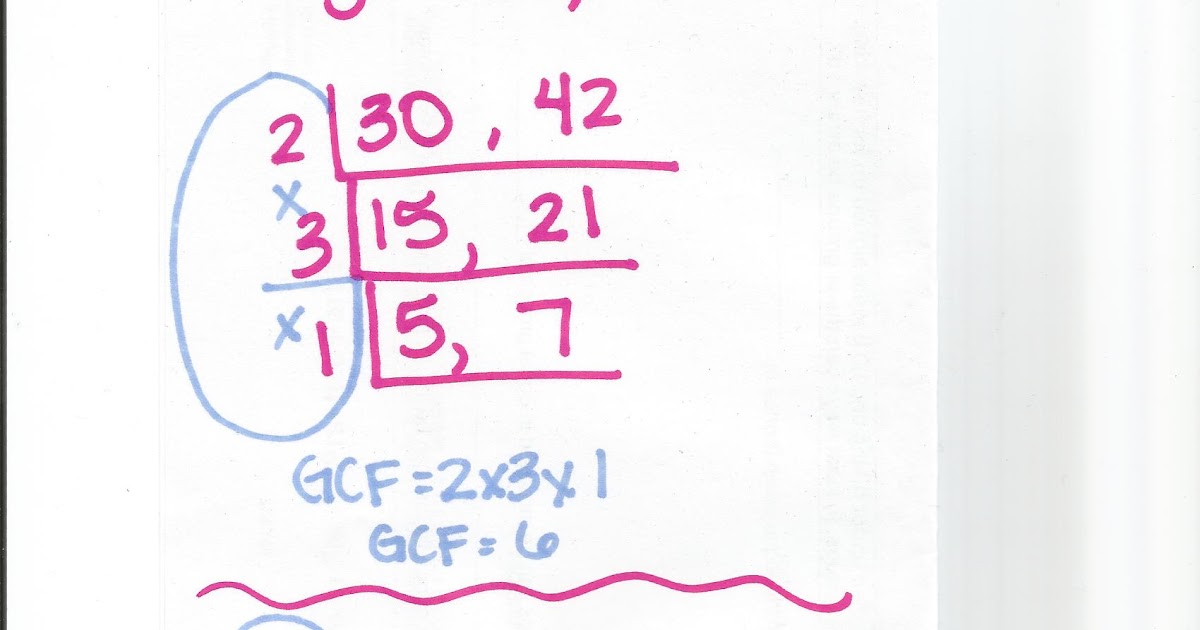 2 30, 42
x
3 15, 21
x 1 5, 7
GCF=2x3x1
GCF=6